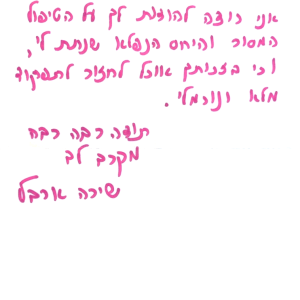 אני רוצה להודות לך על הטיפול
המסור והיחס הנפלא שנתת לי,
וכי בזכותך אוכל לחזור לתפקוד
מלא ונורמלי.
תודה רבה רבה
מקרב לב
שירה ארבל